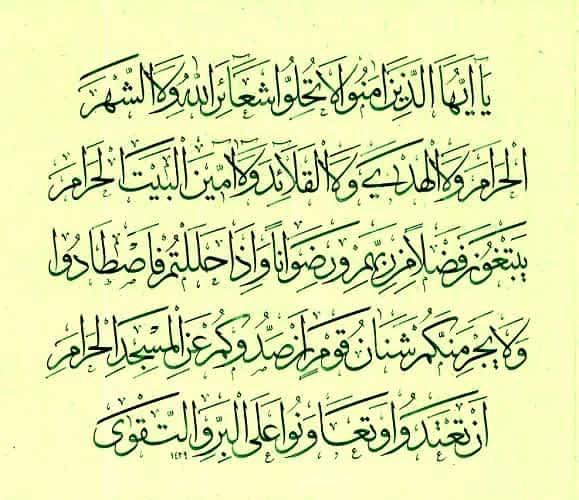 يَا أَيُّهَا الَّذِينَ آمَنُوا لَا تُحِلُّوا شَعَائِرَ اللَّهِ وَلَا الشَّهْرَ
الْحَرَامَ وَلَا الْهَدْيَ وَلَا الْقَلَائِدَ وَلَا آمِّينَ الْبَيْتَ الْحَرَامَ
يَبْتَغُونَ فَضْلًا مِنْ رَبِّهِمْ وَرِضْوَانًا وَإِذَا حَلَلْتُمْ فَاصْطَادُوا
وَلَا يَجْرِمَنَّكُمْ شَنَآنُ قَوْمٍ أَنْ صَدُّوكُمْ عَنِ الْمَسْجِدِ الْحَرَامِ
أَنْ تَعْتَدُوا وَتَعَاوَنُوا عَلَى الْبِرِّ وَالتَّقْوَى
١٤٢٩